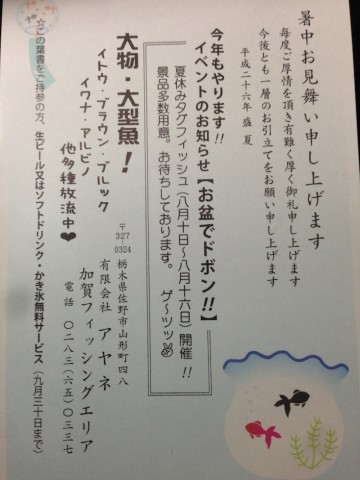 暑中お見舞い申し上げます
毎度ご厚情を頂き有難く厚く御礼申し上げます
今後とも一層のお引立てをお願い申し上げます
平成二十六年 盛夏
今年もやります!!
イベントのお知らせ【お盆でドボン!!】
夏休みタグフィッシュ(八月十日〜八月十六日)開催!!
景品多数用意。お待ちしております。 ゲ〜ッツ✌
大物・大型魚!
イトウ・ブラウン・ブルック
イワナ・アルビノ
他多種放流中♥
〒327-0324 栃木県佐野市山形町四八
有限会社 アヤネ
加賀フィッシングエリア
電話 〇二八三(六五)〇三三七
☆この葉書をご持参の方、生ビール又はソフトドリンク・かき氷無料サービス(九月三十日まで)